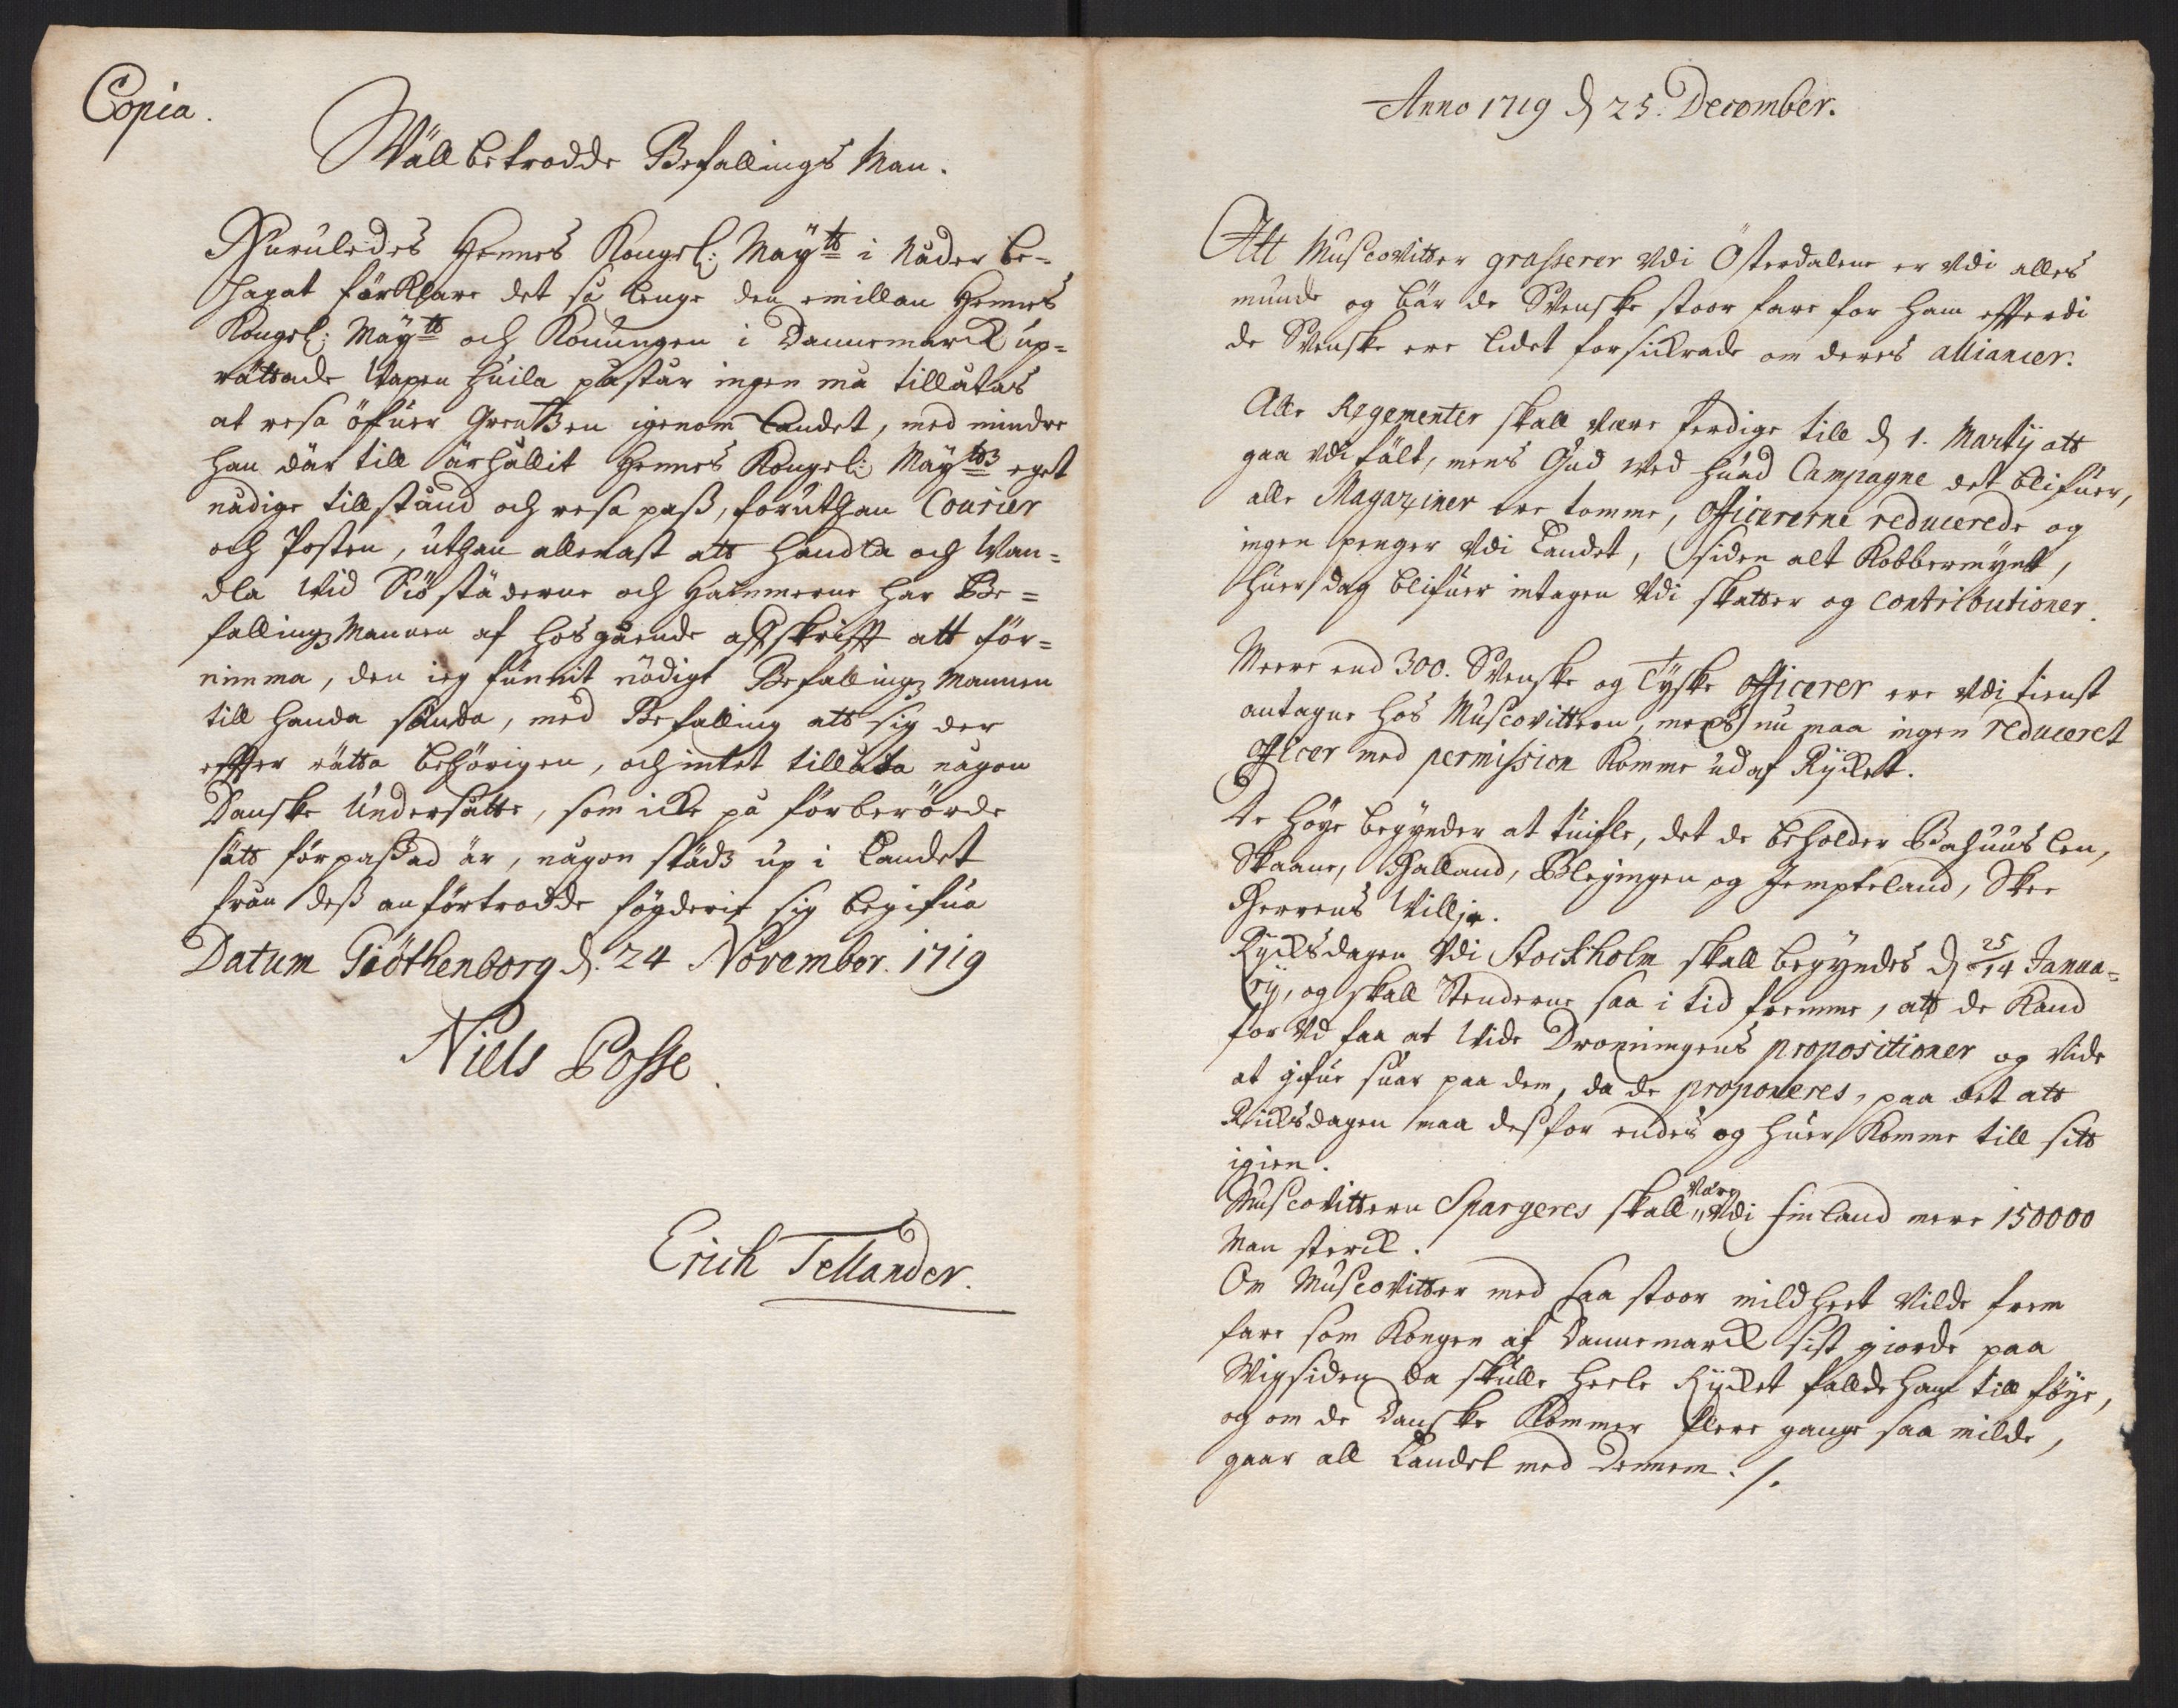 Copia.
Wällbetrodde Befallings Man.
Huruledes Hennes Kongel: Mayts i Nåder be-
hagat förklare det så lenge den emillan Hennes
Kongel: Mayts och Konungen i Dannemarck up-
rättade Wapen huila påstår ingen må tillåtas
at resa öfuer Grentzen igenom Landet, med mindre
han där till ärhållit Hennes Kongel: Maytts eget
nådige tillstånd och resa pass, foruthan Courier
och Posten, uthan allenast att handla och Wan-
dla Wid Siöstäderne och Hamnerne har Be-
fallingz Mannen af hosgående affskrifft att för-
nimma, den ieg funnit nödigt Befallingz Mannen
till handa sända, med Befalling att sig der
effter rätta behörigen, och intet tillåta någon
Danske Undersåtte, som icke på förberörde
sätt förpassad är, någon städz up i Landet
från dess anförtrodde fögderie sig begifua
Datum Giöthenborg d. 24 November. 1719
Niels Posse.
Erich Tellander.
Anno 1719 d 25. December.
Att Muscovitter grasserer Udi Österdalene er Udi alles
munde og bär de Svenske stoor fare for ham efferdi
de Svenske ere lidet forsickrade om deres alliancer.
Alle Regementer skall være ferdige till d 1. Martij att
gaa Udi fält, mens Gud ved huad Campagne det blifuer,
alle Magaziner ere tomme, officererne reducerede og
ingen penger Udi Landet, siden alt Kobbermynt,
huer dag blifuer intagen Udi skatter og Contributioner.
Meere end 300. Svenske og Tyske officerer ere Udi tienst
antagne hos Muscovittern, mens nu maa ingen reduceret
officer med permission komme ud af Rycket.
De höye begynder at tuifle, det de beholder Bahuus len,
Skaane, Halland, Blegingen og Jempteland, Skee
Herrens Villje.
Rycksdagen Udi Stockholm skall begyndes d 25/14 Janua-
rij, og skall Stenderne saa i tid fremme, att de kand
for Ud faa at Vide Dronningens propositioner og Vide
at gifue suar paa dem, da de proponeres, paa det att
Ricksdagen maa dessfor endes og huer komme till sitt
igien.
Muscovittern Spargeres skall være Udi Finland mere 150000
Man sterck.
Om Muscovitter med saa stoor mildheet Vilde frem
fare som Kongen af Dannemarck sist giorde paa
Wigsiden da skulle heele Rycket falde ham till föye,
og om de Danske kommer flere gange saa milde,
gaar all Landet med dennem ./.